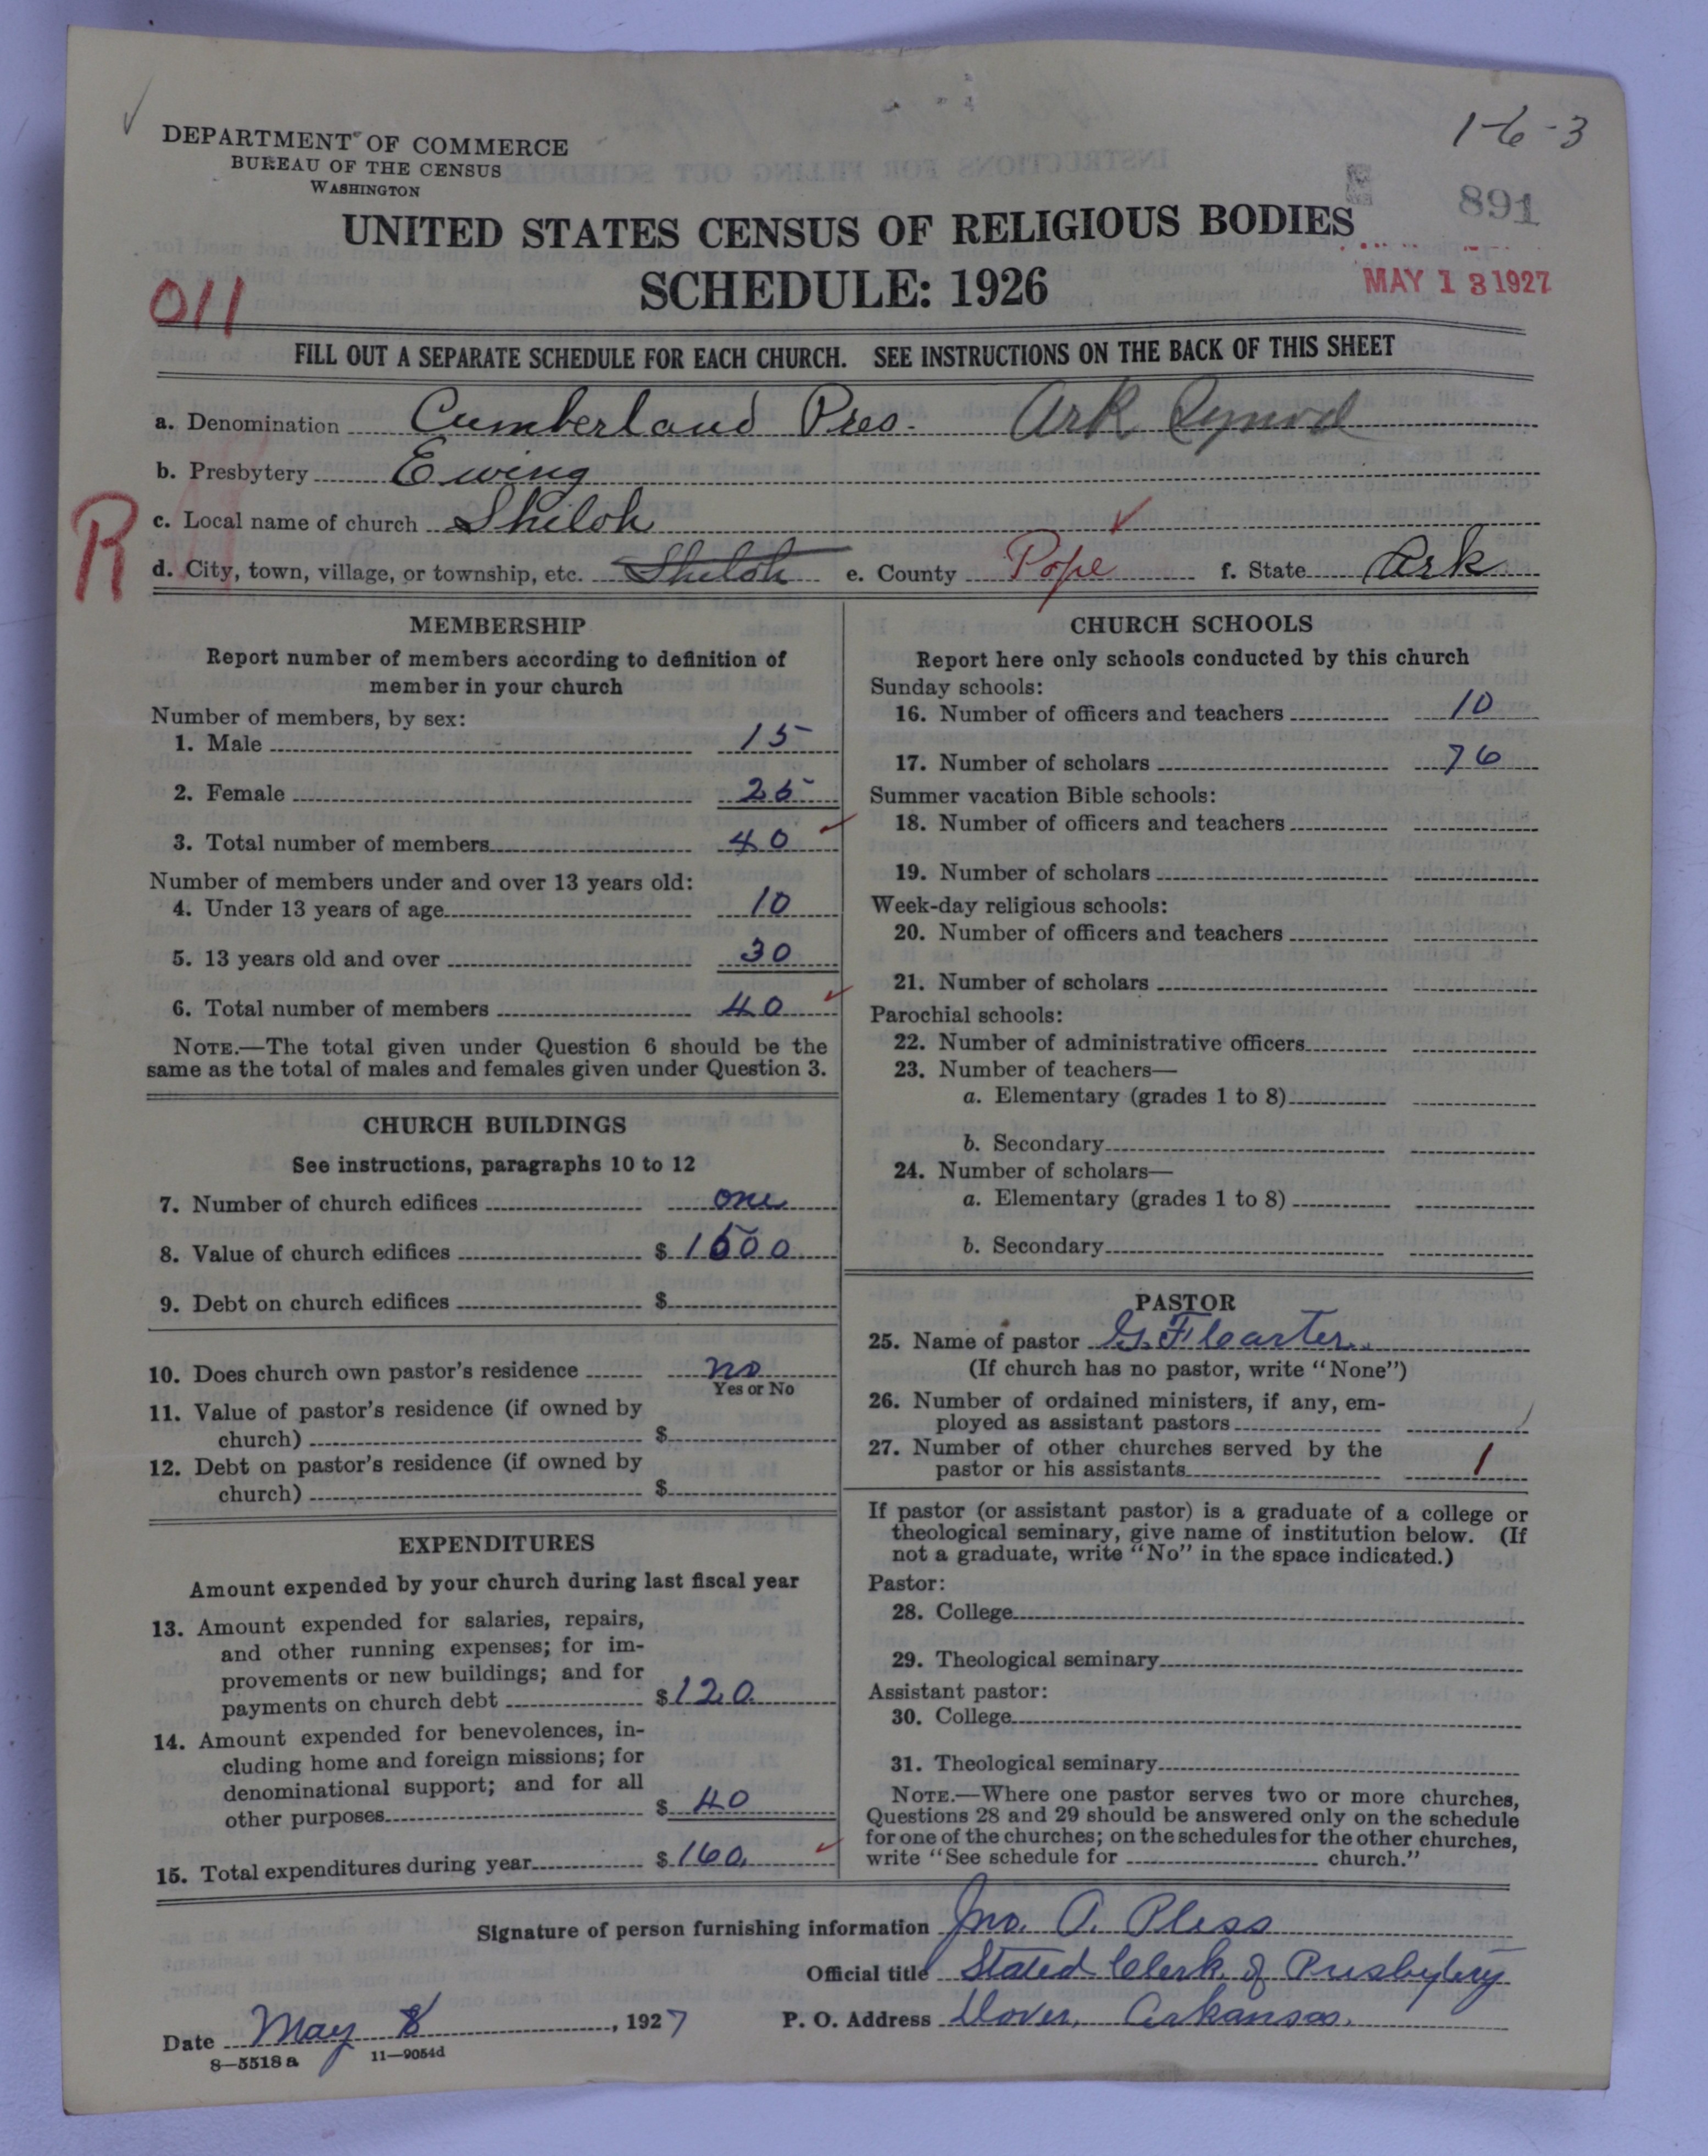 1-6-3
DEPARTMENT OF COMMERCE
BUREAU OF THE CENSUS
WASHINGTON
891
UNITED STATES CENSUS OF RELIGIOUS BODIES
SCHEDULE: 1926
MAY 13 1927
011
FILL OUT A SEPARATE SCHEDULE FOR EACH CHURCH. SEE INSTRUCTIONS ON THE BACK OF THIS SHEET
a. Denomination Cumberland Pres. Ark Synod
b. Presbytery Ewing
R
c. Local name of church Shiloh
d. City, town, village, or township, etc. Shiloh e. County Pope f. State Ark
MEMBERSHIP
Report number of members according to definition of
member in your church
Number of members, by sex:
1. Male 15
2. Female 25
3. Total number of members 40
Number of members under and over 13 years old:
4. Under 13 years of age 10
5. 13 years old and over 30
6. Total number of members 40
NOTE.—The total given under Question 6 should be the
same as the total of males and females given under Question 3.
CHURCH BUILDINGS
See instructions, paragraphs 10 to 12
7. Number of church edifices one
8. Value of church edifices $ 1500
9. Debt on church edifices $
10. Does church own pastor's residence no
Yes or No
11. Value of pastor's residence (if owned by
church) $
12. Debt on pastor's residence (if owned by
church) $
EXPENDITURES
Amount expended by your church during last fiscal year
13. Amount expended for salaries, repairs,
and other running expenses; for im-
provements or new buildings; and for
payments on church debt $ 120
14. Amount expended for benevolences, in-
cluding home and foreign missions; for
denominational support; and for all
other purposes $ 40
15. Total expenditures during year $ 160
CHURCH SCHOOLS
Report here only schools conducted by this church
Sunday schools:
16. Number of officers and teachers 10
17. Number of scholars 76
Summer vacation Bible schools:
18. Number of officers and teachers
19. Number of scholars
Week-day religious schools:
20. Number of officers and teachers
21. Number of scholars
Parochial schools:
22. Number of administrative officers
23. Number of teachers—
a. Elementary (grades 1 to 8)
b. Secondary
24. Number of scholars—
a. Elementary (grades 1 to 8)
b. Secondary
PASTOR
25. Name of pastor G. F. Carter
(If church has no pastor, write "None")
26. Number of ordained ministers, if any, em-
ployed as assistant pastors
27. Number of other churches served by the
pastor or his assistants 1
If pastor (or assistant pastor) is a graduate of a college or
theological seminary, give name of institution below. (If
not a graduate, write "No" in the space indicated.)
Pastor:
28. College
29. Theological seminary
Assistant pastor:
30. College
31. Theological seminary
NOTE.—Where one pastor serves two or more churches,
Questions 28 and 29 should be answered only on the schedule
for one of the churches; on the schedules for the other churches,
write "See schedule for church."
Signature of person furnishing information Jno. A. Pless
Official title Stated Clerk of Presbytery
Date May 8, 1927 P. O. Address Dover, Arkansas.
8—5518 a 11—9054d